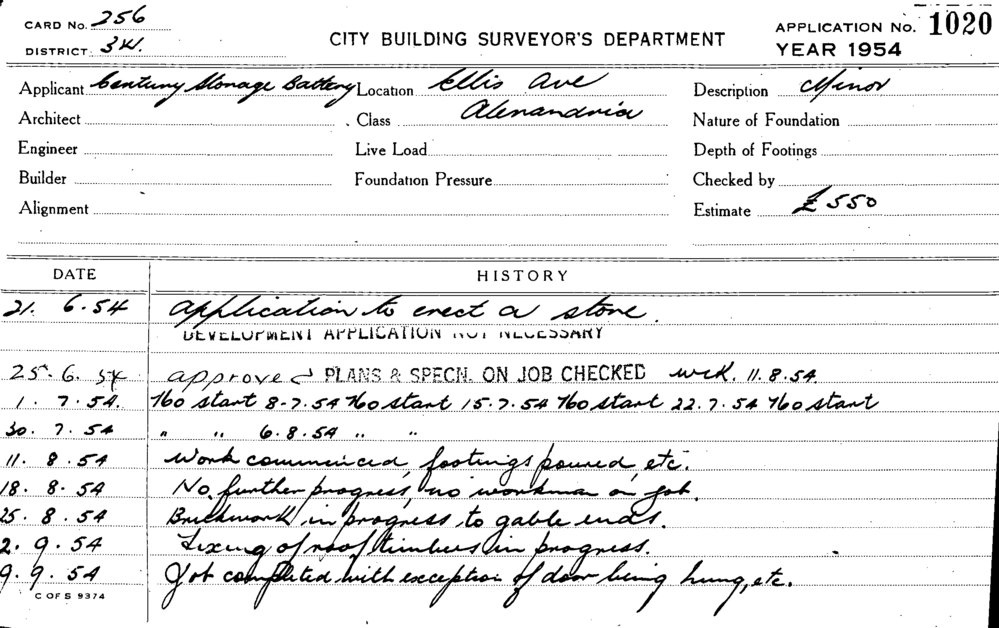 CARD No. 256
DISTRICT. 3W.
CITY BUILDING SURVEYOR'S DEPARTMENT
APPLICATION No. 1020
YEAR 1954
Applicant Century Storage Battery Location Ellis Ave Description Minor
Architect Class Alexandria Nature of Foundation
Engineer Live Load Depth of Footings
Builder Foundation Pressure Checked by
Alignment Estimate £550
DATE HISTORY
21. 6.54 application to erect a store.
DEVELOPMENT APPLICATION NOT NECESSARY
25.6.54 approved PLANS & SPECN. ON JOB CHECKED wck. 11.8.54.
1.7.54. No start 8-7.54 No start 15.7.54 No start 22.7.54 No start
30.7.54 " " 6.8.54 " "
11.8.54 Work commenced, footings poured, etc.
18.8.54 No further progress, no workman on job.
25.8.54 Brickwork in progress to gable ends.
2.9.54 Fixing of roof timbers in progress.
9.9.54 Job completed with exception of door being hung, etc.
C OF S 9374